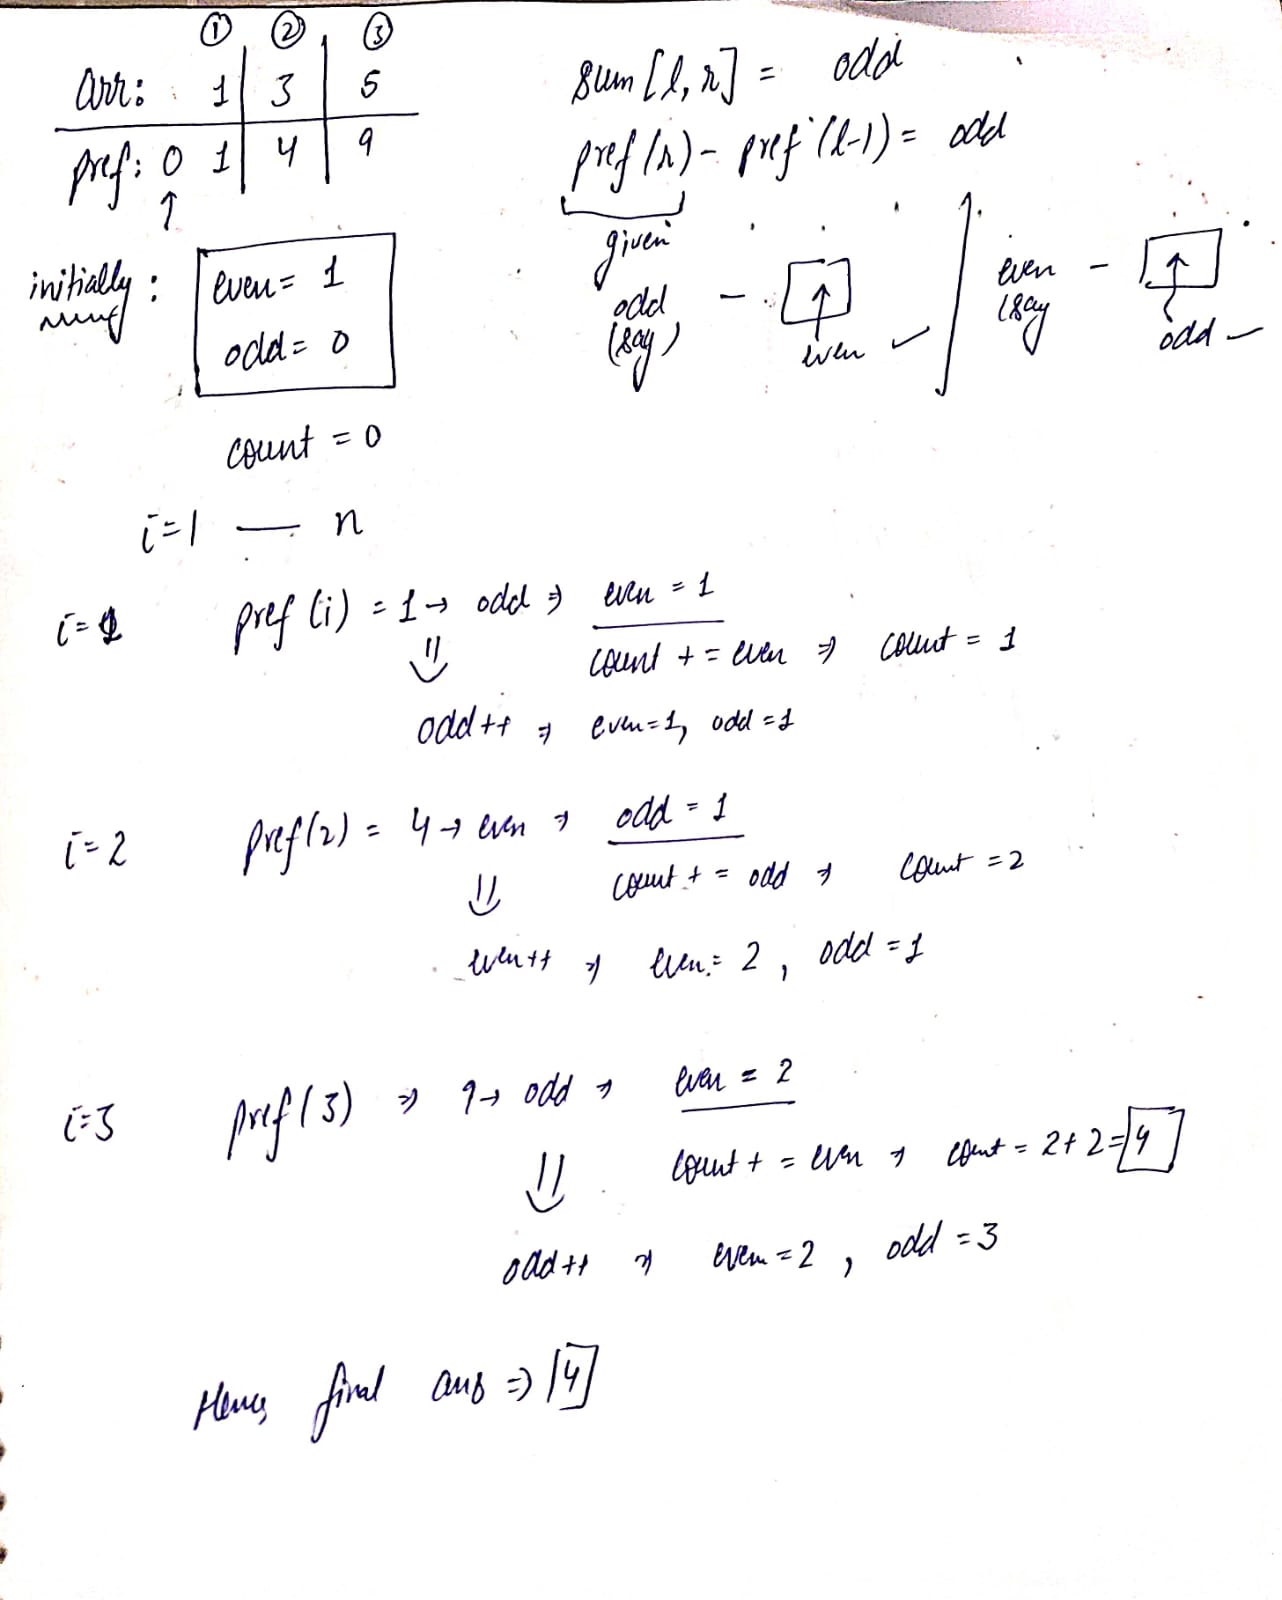 ① ② ③
arr: 1 3 5
pref: 0 1 4 9
↑
initially:
even = 1
odd = 0
count = 0
sum [l, r] = odd
pref (r) - pref (l-1) = odd
given
odd - ↑ / even - ↑
(say) even ✓ (say odd
i=1 — n
i=1 pref (i) = 1 → odd ⇒ even = 1
⇓ count += even ⇒ count = 1
odd++ ⇒ even=1, odd=1
i=2 pref(2) = 4 → even ⇒ odd = 1
⇓ count += odd ⇒ count = 2
even++ ⇒ even = 2, odd = 1
i=3 pref(3) ⇒ 9 → odd ⇒ even = 2
⇓ count += even ⇒ count = 2+2=4
odd++ ⇒ even = 2, odd = 3
Hence final ans ⇒ 4